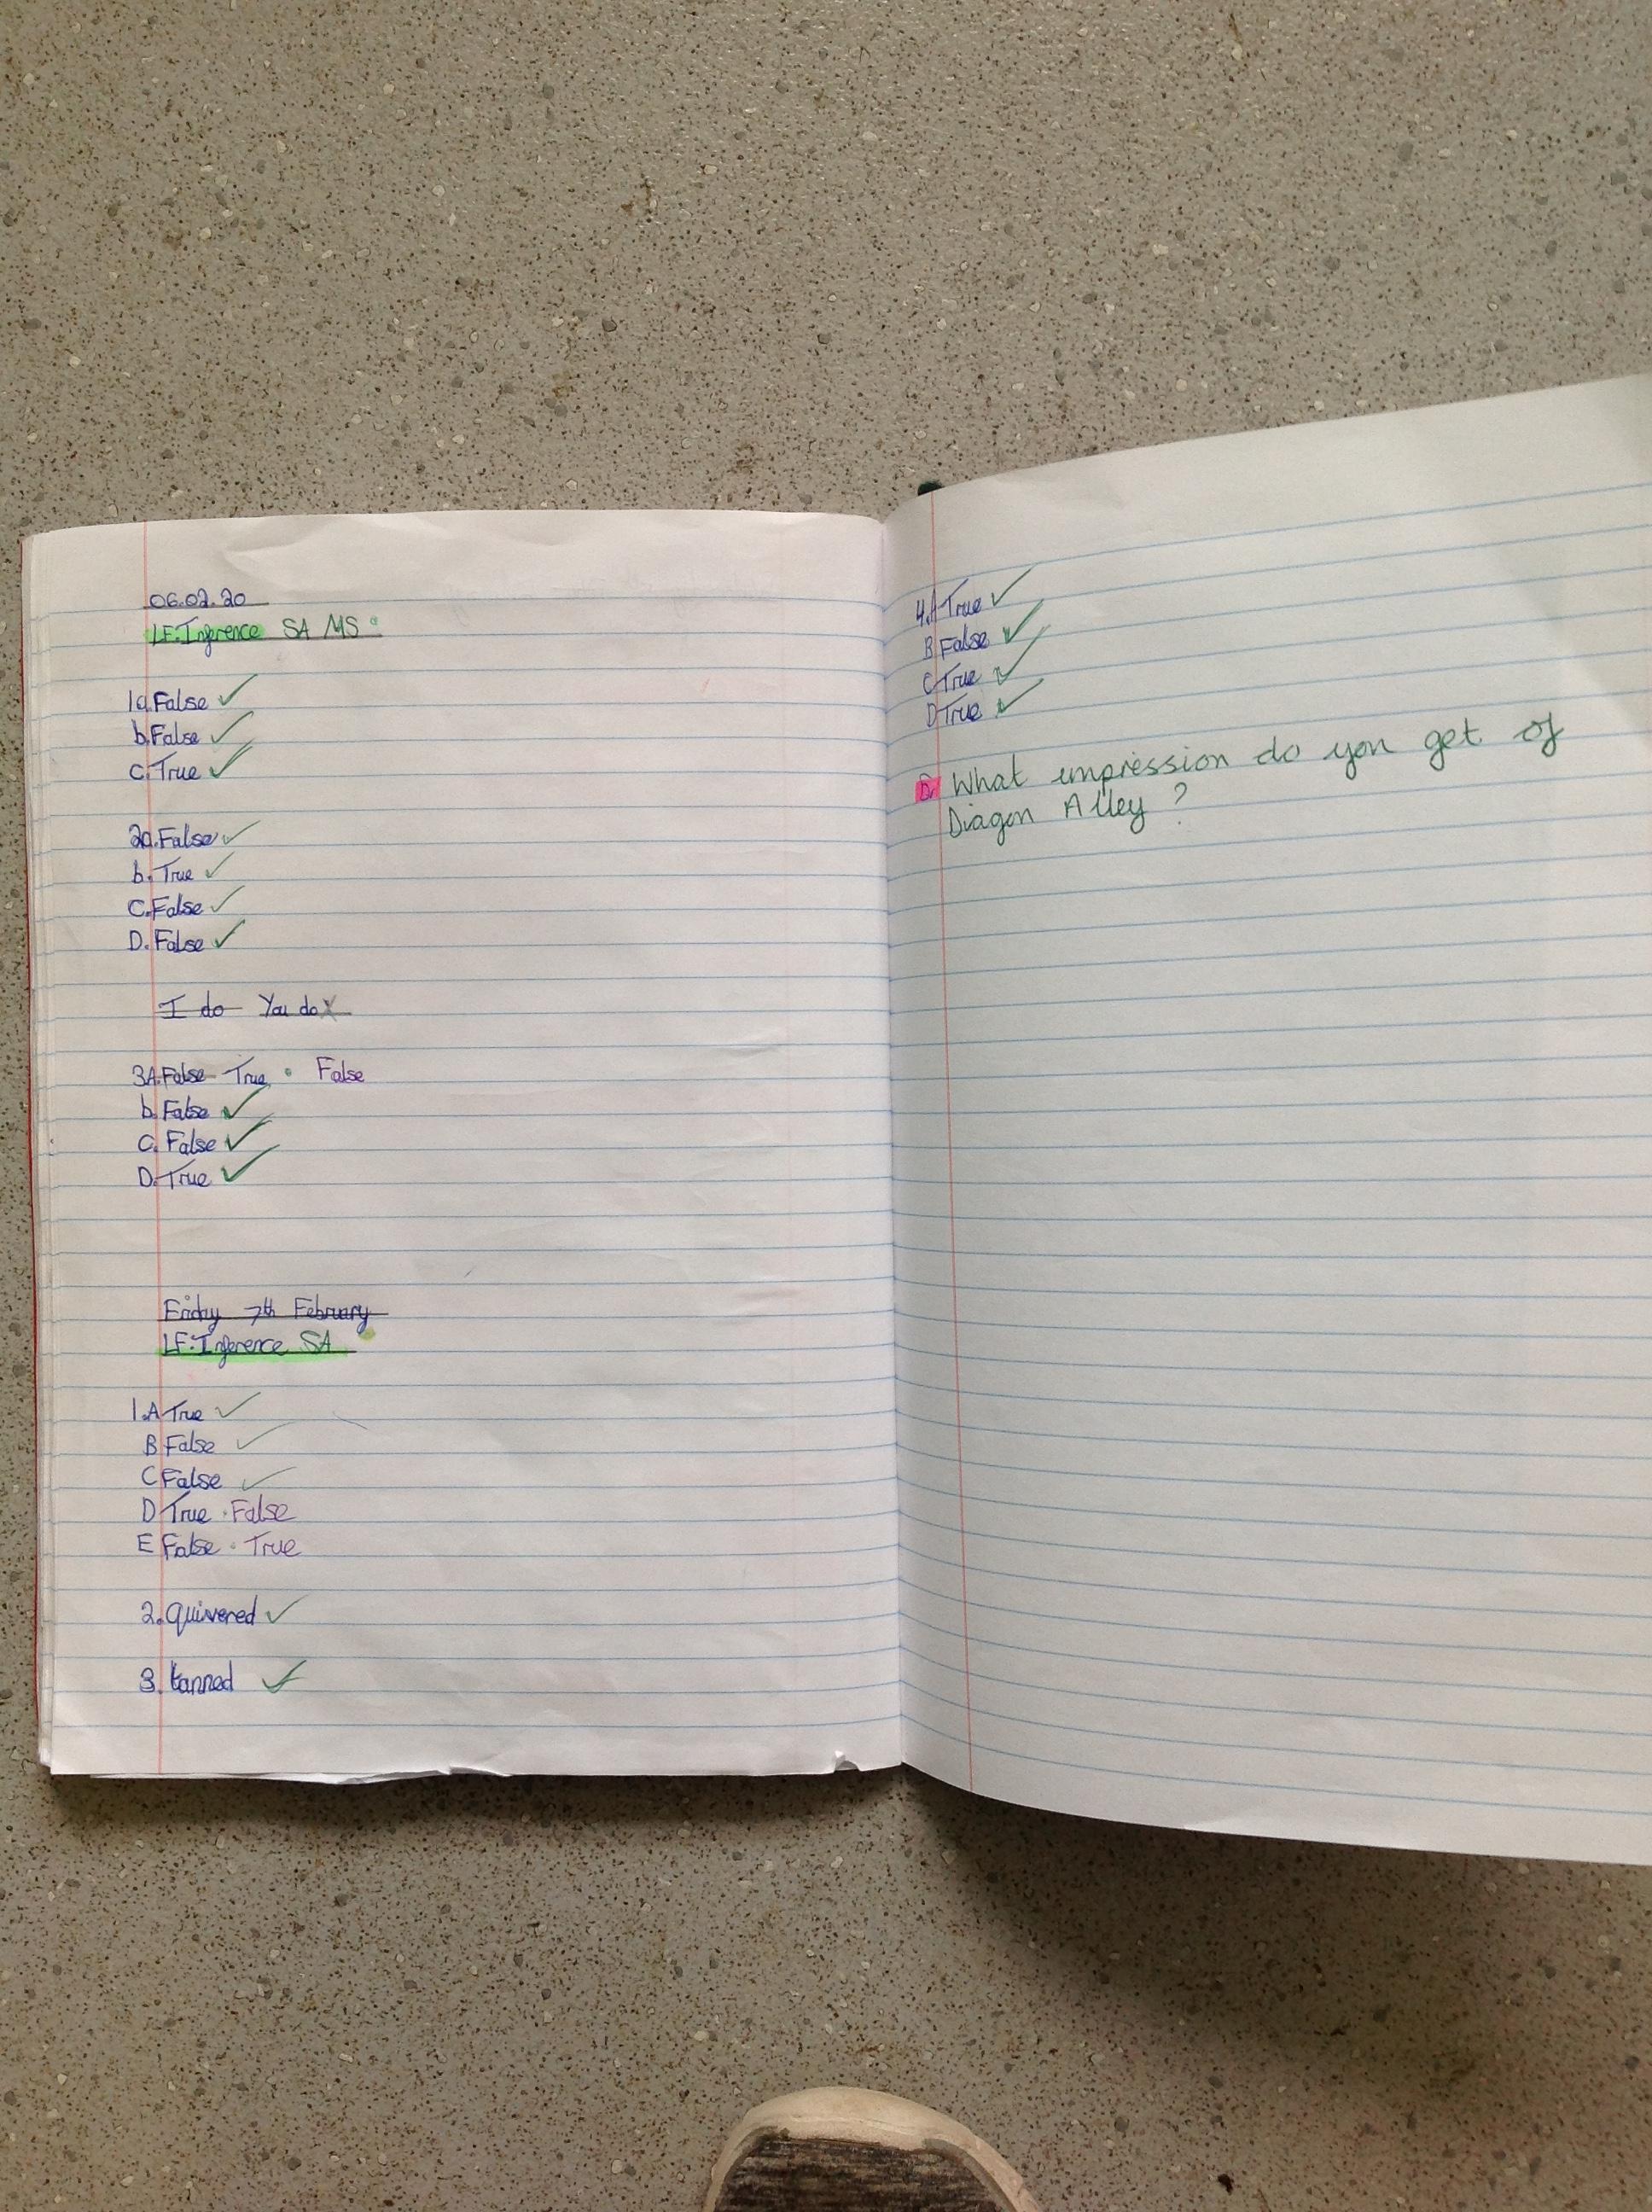 06.02.20
LF: Inference SA MS
1a. False
b. False
c. True
2a. False
b. True
C. False
D. False
I do You do
3A. False True False
b. False
C. False
D. True
Friday 7th February
LF: Inference SA
1.A True
B False
C False
D True False
E False True
2. quivered
3. tanned
4.A True
B False
C True
D True
D. What impression do you get of
Diagon Alley?